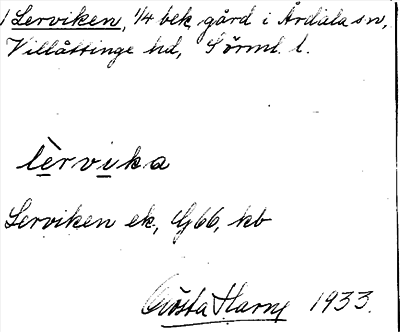 1 Lerviken, 1/4 bek, gård i Årdala sn,
Villåttinge hd, Sörml. l.
lèrvika
Lerviken ek, G66, kb
Gösta Harne 1933.